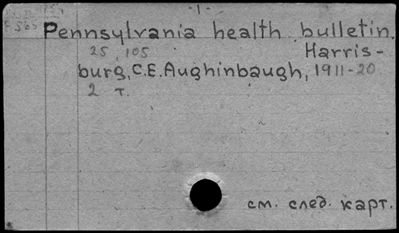 - 1 -
E 565
Pennsylvania health bulletin.
25, 105 Harris-
burg, C.E. Aughinbaugh, 1911-20
2 т.
см. след. карт.